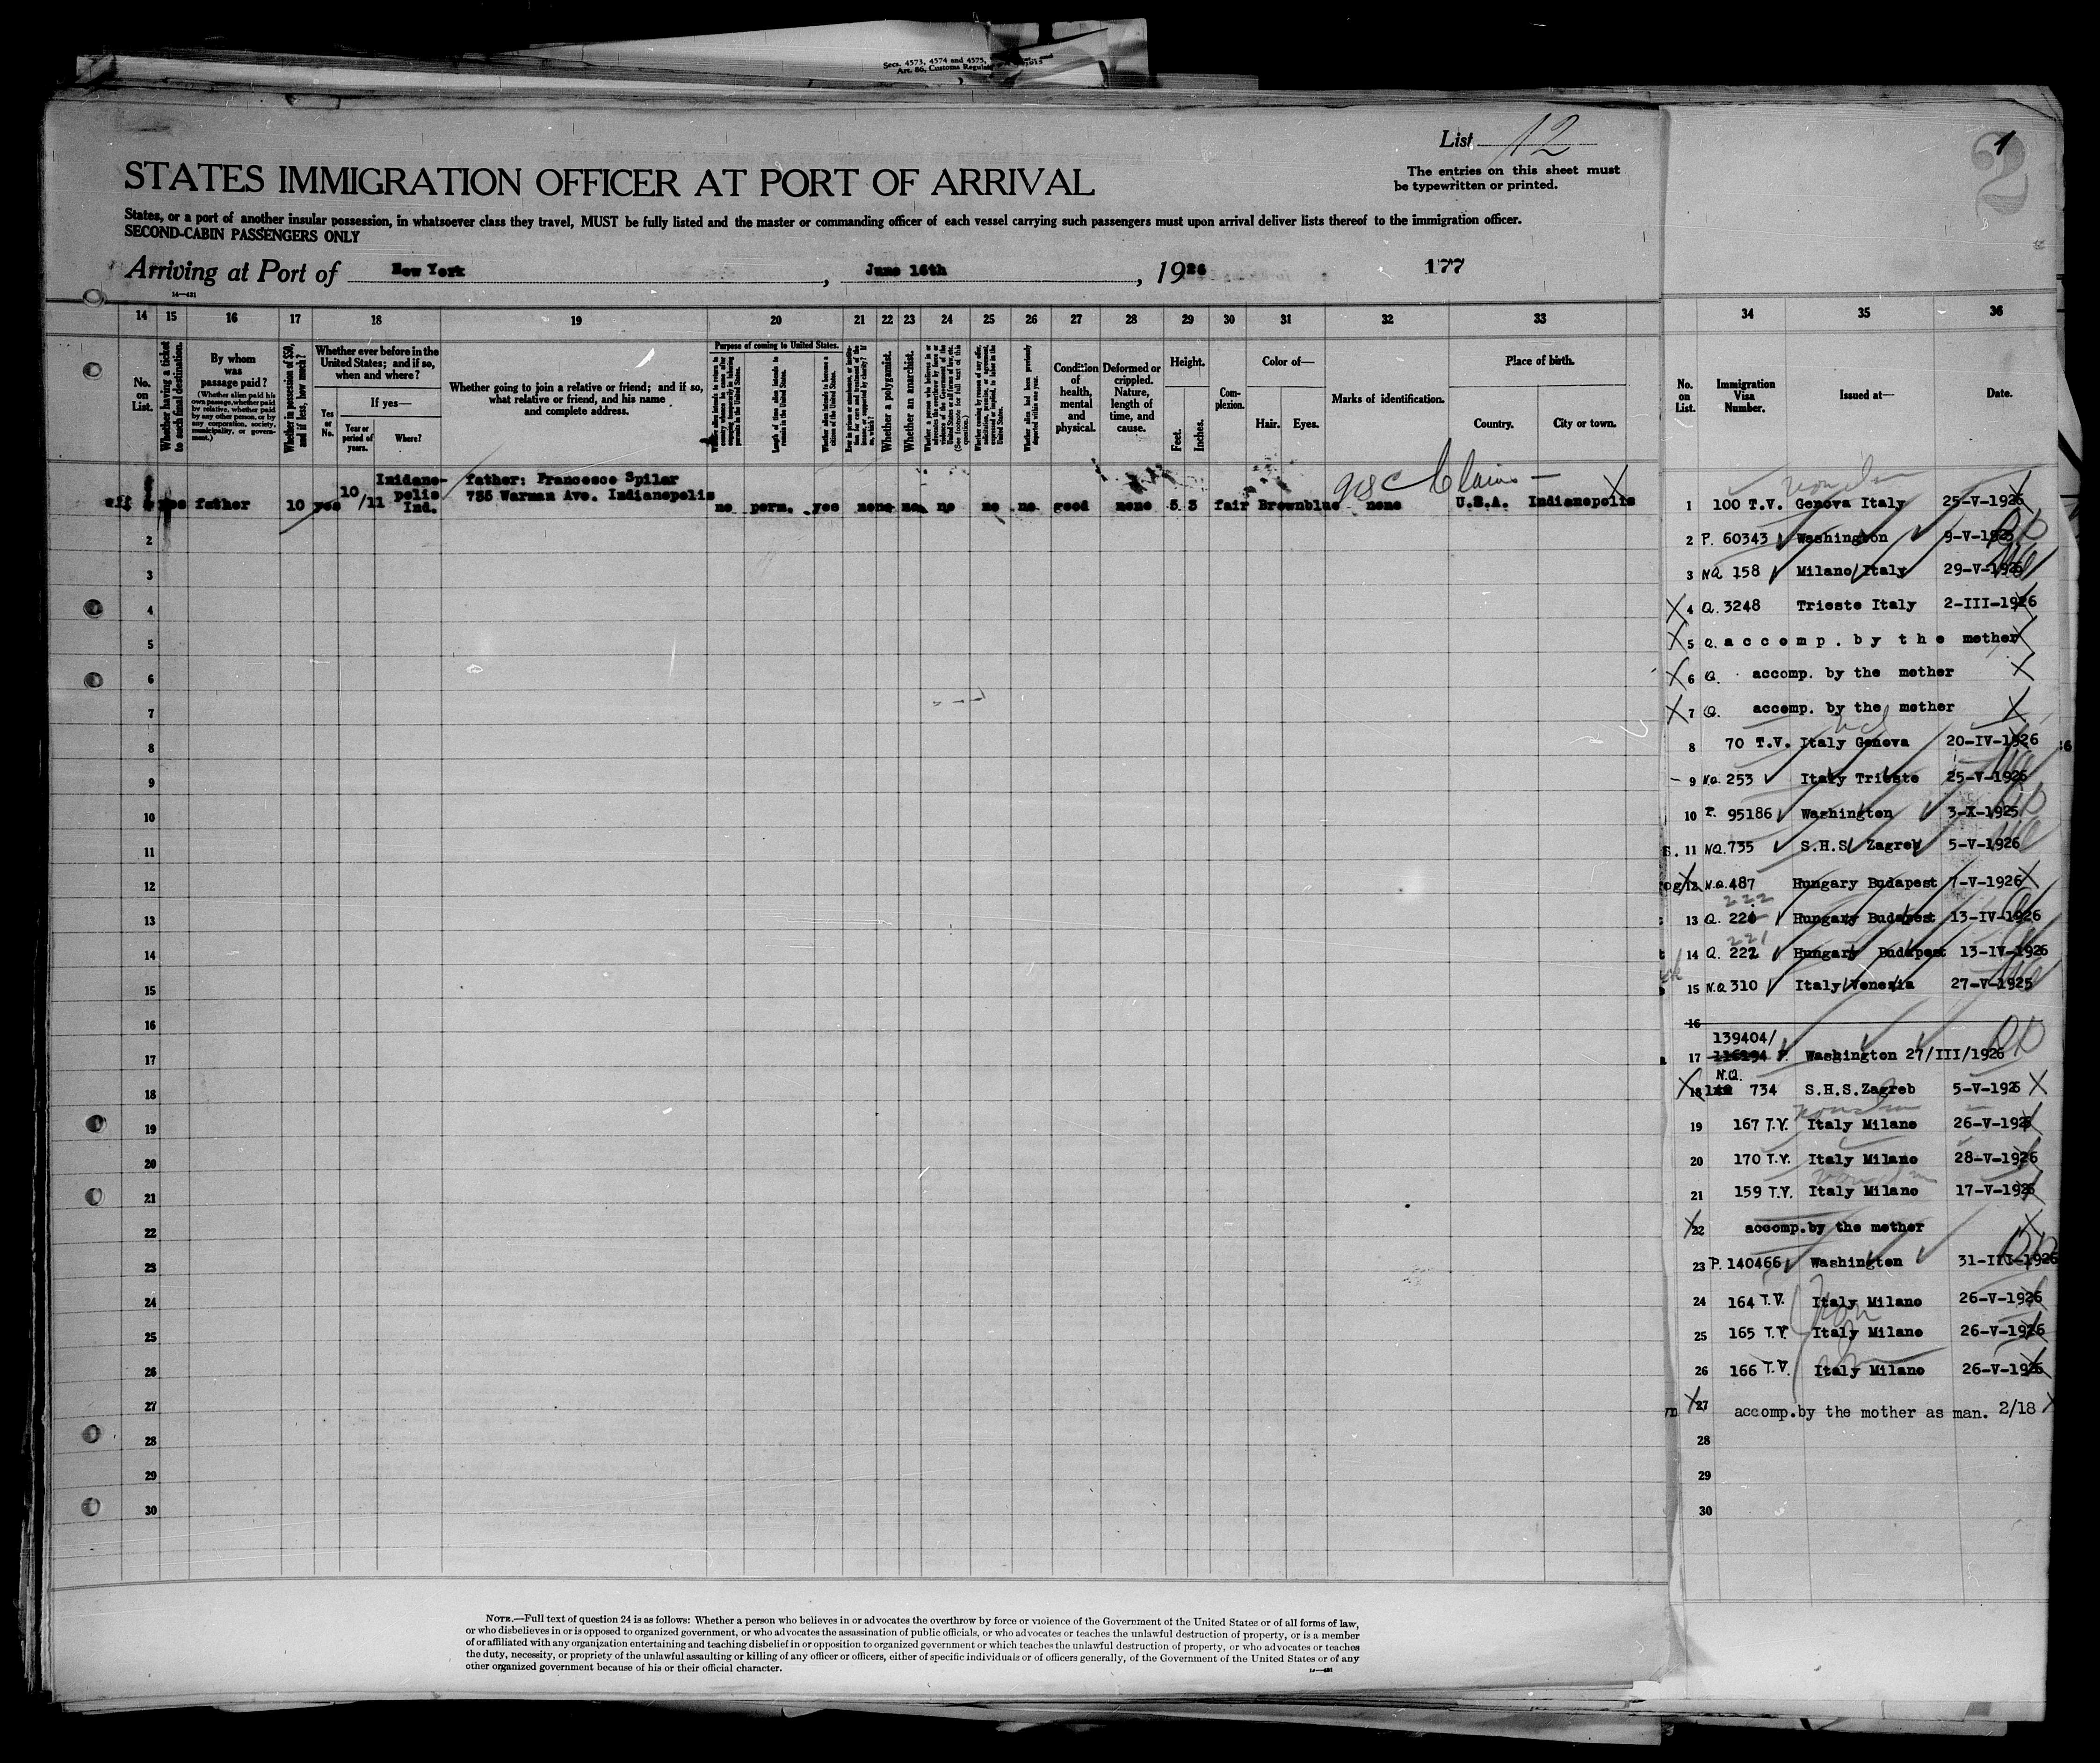 Secs. 4573, 4574 and 4575,
Art. 86, Customs Regula
List 12
The entries on this sheet must
be typewritten or printed.
STATES IMMIGRATION OFFICER AT PORT OF ARRIVAL
States, or a port of another insular possession, in whatsoever class they travel, MUST be fully listed and the master or commanding officer of each vessel carrying such passengers must upon arrival deliver lists thereof to the immigration officer.
SECOND-CABIN PASSENGERS ONLY
Arriving at Port of New York, June 16th, 1926
177
14—431
14 15 16 17 18 19 20 21 22 23 24 25 26 27 28 29 30 31 32 33
No. on List.
Whether having a ticket to such final destination.
By whom was passage paid?
(Whether alien paid his own passage, whether paid by relative, whether paid by any other person, or by any corporation, society, municipality, or government.)
Whether in possession of $50, and if less, how much?
Whether ever before in the United States; and if so, when and where?
Yes or No.
If yes—
Year or period of years.
Where?
Whether going to join a relative or friend; and if so, what relative or friend, and his name and complete address.
Purpose of coming to United States.
Length of time alien intends to remain in the United States.
Whether alien intends to become a citizen of the United States.
Whether a polygamist.
Whether an anarchist.
Condition of health, mental and physical.
Deformed or crippled. Nature, length of time, and cause.
Height.
Feet.
Inches.
Complexion.
Color of—
Hair. Eyes.
Marks of identification.
Place of birth.
Country. City or town.
USC Claims —
yes father 10 yes 10/11 Inidanopolis Ind. father: Francesco Spilar
735 Warman Ave. Indianopolis no perm. yes none no no no no good none 5 3 fair Brown blue none U.S.A. Indianopolis
2
3
4
5
6
7
8
9
10
11
12
13
14
15
16
17
18
19
20
21
22
23
24
25
26
27
28
29
30
NOTE.—Full text of question 24 is as follows: Whether a person who believes in or advocates the overthrow by force or violence of the Government of the United States or of all forms of law,
or who disbelieves in or is opposed to organized government, or who advocates the assassination of public officials, or who advocates or teaches the unlawful destruction of property, or is a member
of or affiliated with any organization entertaining and teaching disbelief in or opposition to organized government or which teaches the unlawful destruction of property, or who advocates or teaches
the duty, necessity, or propriety of the unlawful assaulting or killing of any officer or officers, either of specific individuals or of officers generally, of the Government of the United States or of any
other organized government because of his or their official character.
14—431
1
2
34 35 36
No. on List.
Immigration Visa Number.
Issued at—
Date.
1 100 T.V. Genova Italy 25-V-1926
2 P. 60343 Washington 9-V-1925
3 NQ 158 Milano Italy 29-V-1926
4 Q. 3248 Trieste Italy 2-III-1926
5 Q. accomp. by the mother
6 Q. accomp. by the mother
7 Q. accomp. by the mother
8 70 T.V. Italy Genova 20-IV-1926
9 N.Q. 253 Italy Trieste 25-V-1926
10 P. 95186 Washington 3-X-1925
11 NQ. 735 S.H.S. Zagreb 5-V-1926
12 N.Q. 487 Hungary Budapest 7-V-1926
222
13 Q. 221 Hungary Budapest 13-IV-1926
221
14 Q. 222 Hungary Budapest 13-IV-1926
15 N.Q 310 Italy Venezia 27-V-1925
16
139404/
17 116194 P. Washington 27/III/1926
N.Q.
18 734 S.H.S. Zagreb 5-V-1926
19 167 T.V. Italy Milano 26-V-1926
20 170 T.V. Italy Milano 28-V-1926
21 159 T.V. Italy Milano 17-V-1926
22 accomp. by the mother
23 P. 140466 Washington 31-III-1926
24 164 T.V. Italy Milano 26-V-1926
25 165 T.V. Italy Milano 26-V-1926
26 166 T.V. Italy Milano 26-V-1926
27 accomp. by the mother as man. 2/18
28
29
30